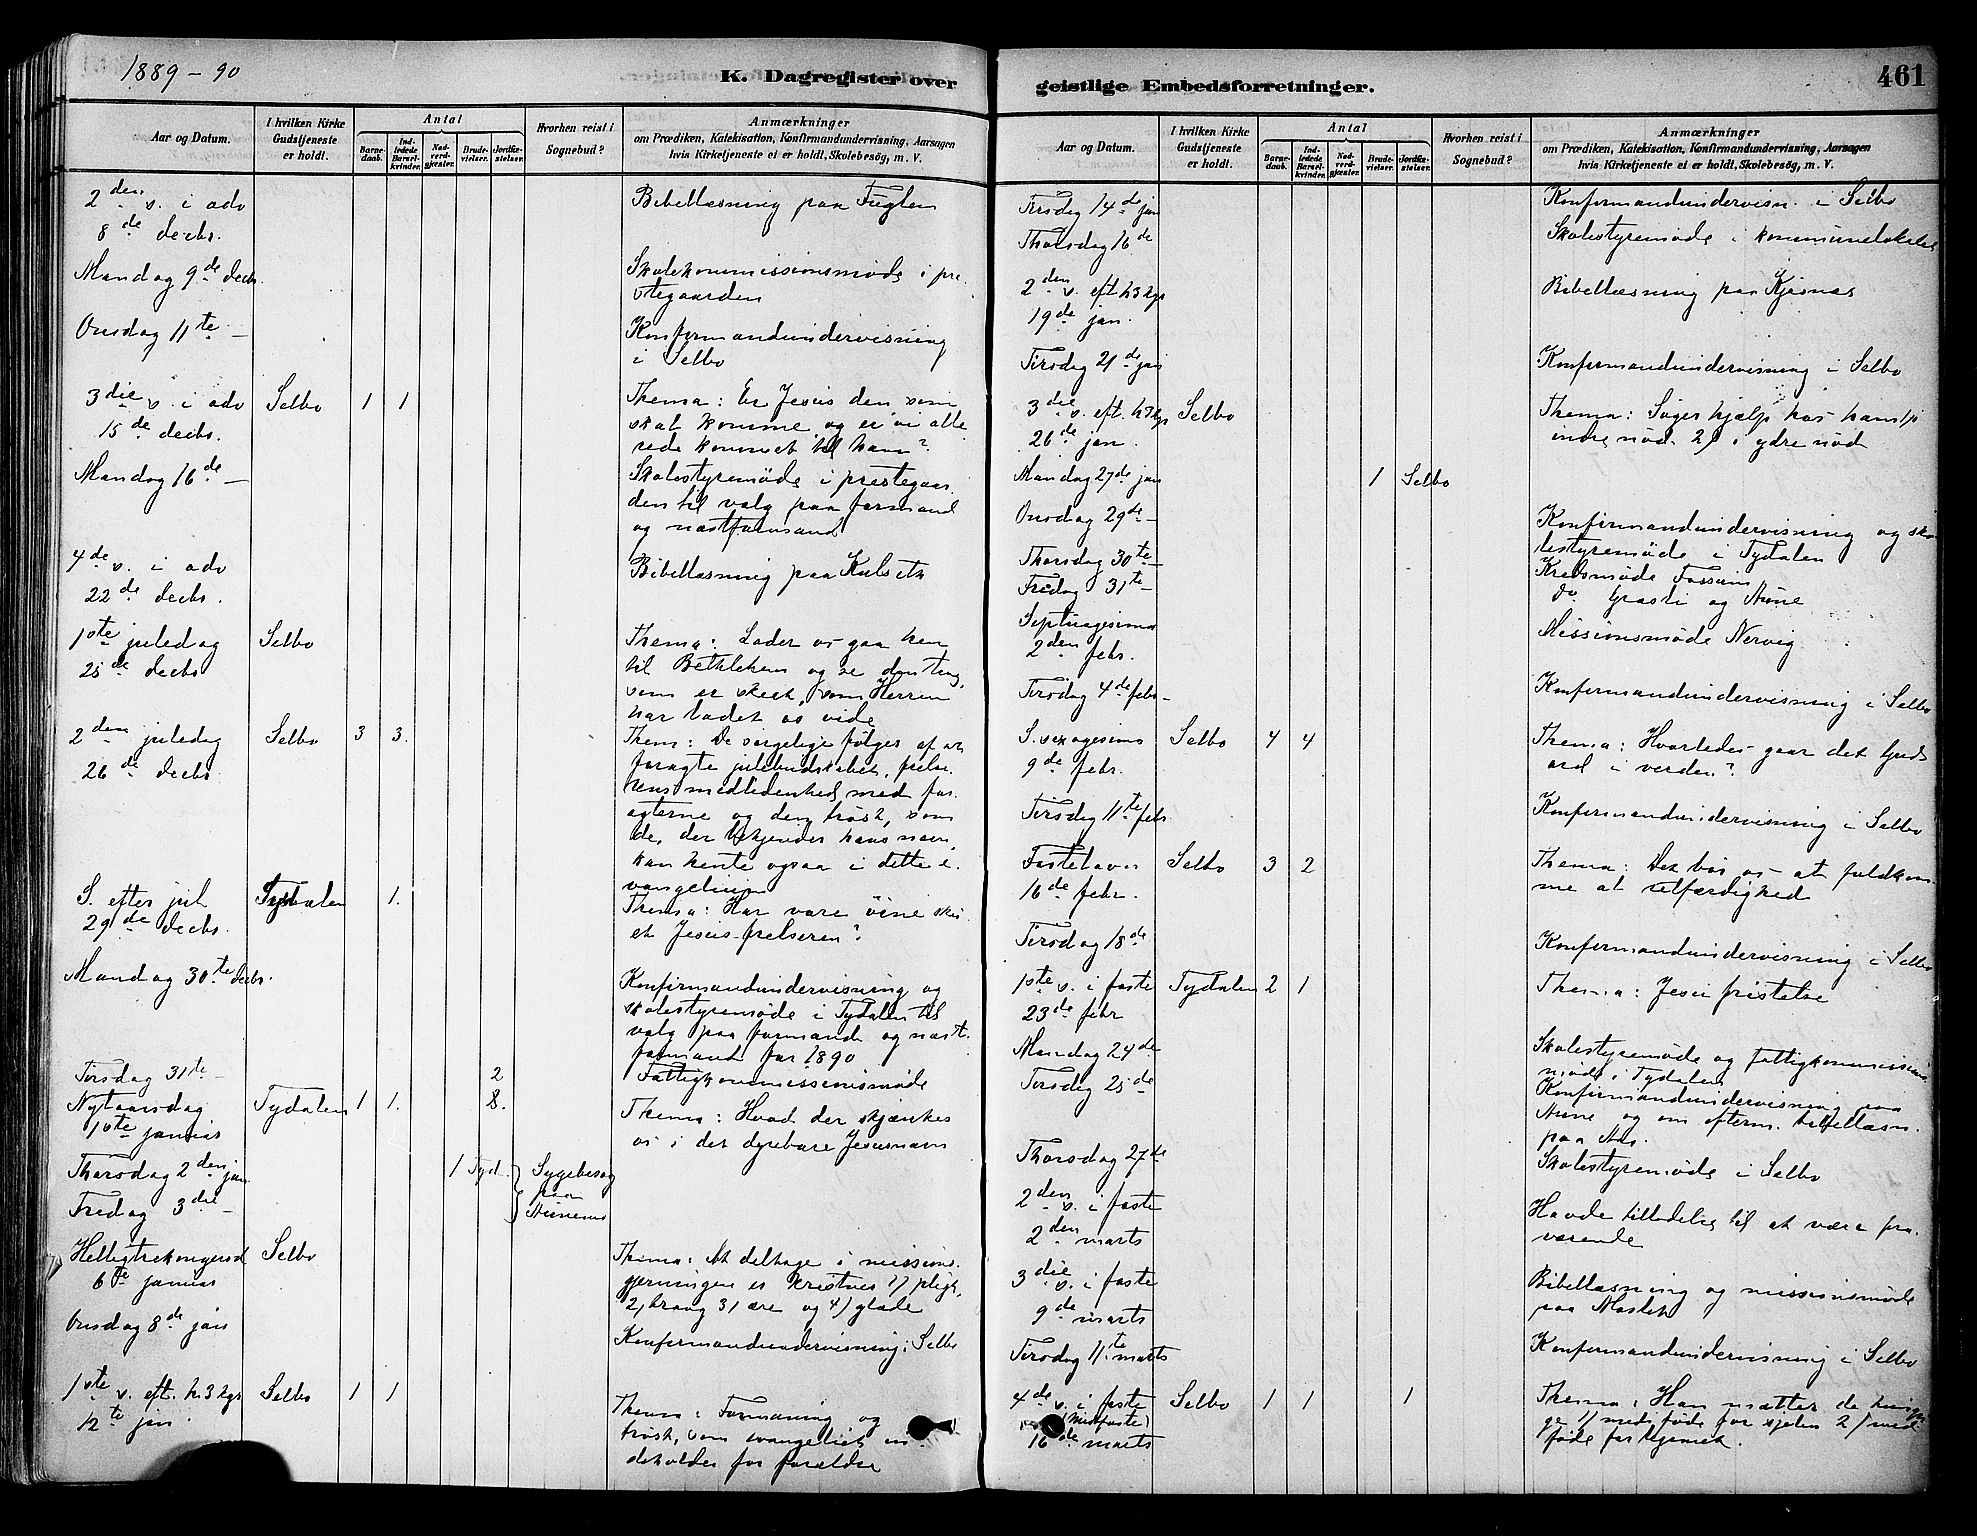 1889-90
K. Dagregister over
Aar og Datum.
I hvilken Kirke
Gudstjeneste
er holdt.
Antal
Barne-
daab.
Ind-
ledede
Barsel-
kvinder.
Nad-
verd-
gjæster.
Brude-
vielser.
Jordfæ-
stelser.
Hvorhen reist i
Sognebud?
Anmærkninger
om Prædiken, Katekisation, Konfirmandundervisning, Aarsagen
hvis Kirketjeneste ei er holdt, Skolebesög, m. V.
2den s. i adv Bibellæsning paa Fuglem
8de decbr.
Mandag 9de decbr. Skolekommissionsmøde i pre-
stegaarden
Onsdag 11te – Konfirmandundervisning
i Selbo
3die s. i adv Selbo 1 1 Thema: Er Jesus den, som
15de decbr. skal komme og er vi alle
rede kommet til ham?
Mandag 16de – Skolestyremøde i prestegaar
den til valg paa formand
og næstformand
4de s. i adv Bibellæsning paa Kulseth
22de decbr.
1ste juledag Selbo Thema: Lader os gaa hen
25de decbr til Bethlehem og se den ting,
som er skeet, som Herren
har ladet os vide
2den juledag Selbo 3 3. Them: De sørgelige følger af at
26de decbr. foragte julebudskabet, frelse
rens medlidenhed med for
agterne og den trøst, som
de, der bekjender hans navn,
kan hente ogsaa i dette e-
vangelium
S. efter jul Tydalen 1. Thema: Har vore øine
29de decbr. et Jesus-frelseren?
Mandag 30te decbr. Konfirmandundervisning og
skolestyremøde i Tydalen til
valg paa formand og næst-
formand for 1890
Tirsdag 31te – 2 Fattigkommissionsmøde
Nytaarsdag Tydalen 1 1. 8. Thema: Hvad der skjænkes
1ste januar os i det dyrebare Jesusnavn
Thorsdag 2den jan. 1 Tyd. Sygebesøg
Fredag 3die – paa
Helligtrekongersd Selbo Thema: At deltage i missions-
6te januar gjerningen er kristnes 1/ pligt,
2/ trang 3/ ære og 4/ glæde
Onsdag 8de jan Konfirmandundervisning i Selbo
1ste s. eft. h. 3 kgr Selbo 1 1 Thema: Formaning og
12te jan. trøst, som evangeliet in
deholder for forældre
geistlige Embedsforretninger.
461
Aar og Datum.
I hvilken Kirke
Gudstjeneste
er holdt.
Antal
Barne-
daab.
Ind-
ledede
Barsel-
kvinder.
Nad-
verd-
gjæster.
Brude-
vielser.
Jordfæ-
stelser.
Hvorhen reist i
Sognebud?
Anmærkninger
om Prædiken, Katekisation, Konfirmandundervisning, Aarsagen
hvis Kirketjeneste ei er holdt, Skolebesög, m. V.
Tirsdag 14de jan Konfirmandundervisn. i Selbo
Thorsdag 16de Skolestyremøde i kommunelokalet
2den s. eft h 3 kgr Bibellæsning paa Kjøsnæs
19de jan.
Tirsdag 21de jan Konfirmandundervisning i Selbo
3die s. eft. h 3 kgr Selbo Thema: Søger hjælp hos ham 1/
26de jan. indre nød. 2/ i ydre nød
Mandag 27de jan 1 Selbo
Onsdag 29de – Konfirmandundervisning og sko
lestyremøde i Tydalen
Thorsdag 30te – Kredsmøde Fossum
Fredag 31te – do. Græsli og Aune
Septuagesima Missionsmøde Nervig
2den febr.
Tirsdag 4de febr. Konfirmandundervisning i Selbo
S. sexagesima Selbo 4 4 Thema: Hvorledes gaar det Guds
9de febr. ord i verden?
Tirsdag 11te febr. Konfirmandundervisning i Selbo
Fastelavn Selbo 3 2 Thema: Det bør os at fuldkom-
16de febr. me al retfærdighed
Tirsdag 18de Konfirmandundervisning i Selbo
1ste s. i faste Tydalen 2 1 Thema: Jesu fristelse
23de febr
Mandag 24de Skolestyremøde og fattigkommissions
møde i Tydalen
Tirsdag 25de Konfirmandundervisning paa
Aune og om efterm. bibellæsn.
paa Aas.
Thorsdag 27de Skolestyremøde i Selbo
2den s. i faste Havde tilladelse til at være fra-
2den marts værende
3die s. i faste Bibellæsning og missionsmøde
9de marts paa Moslet
Tirsdag 11te marts Konfirmandundervisning i Selbo
4de s. i faste Selbo 1 1 1 Thema: Han mætter de hungri
(Midfaste) ge 1/ med føde for sjælen 2/ med
16de marts føde for legemet.